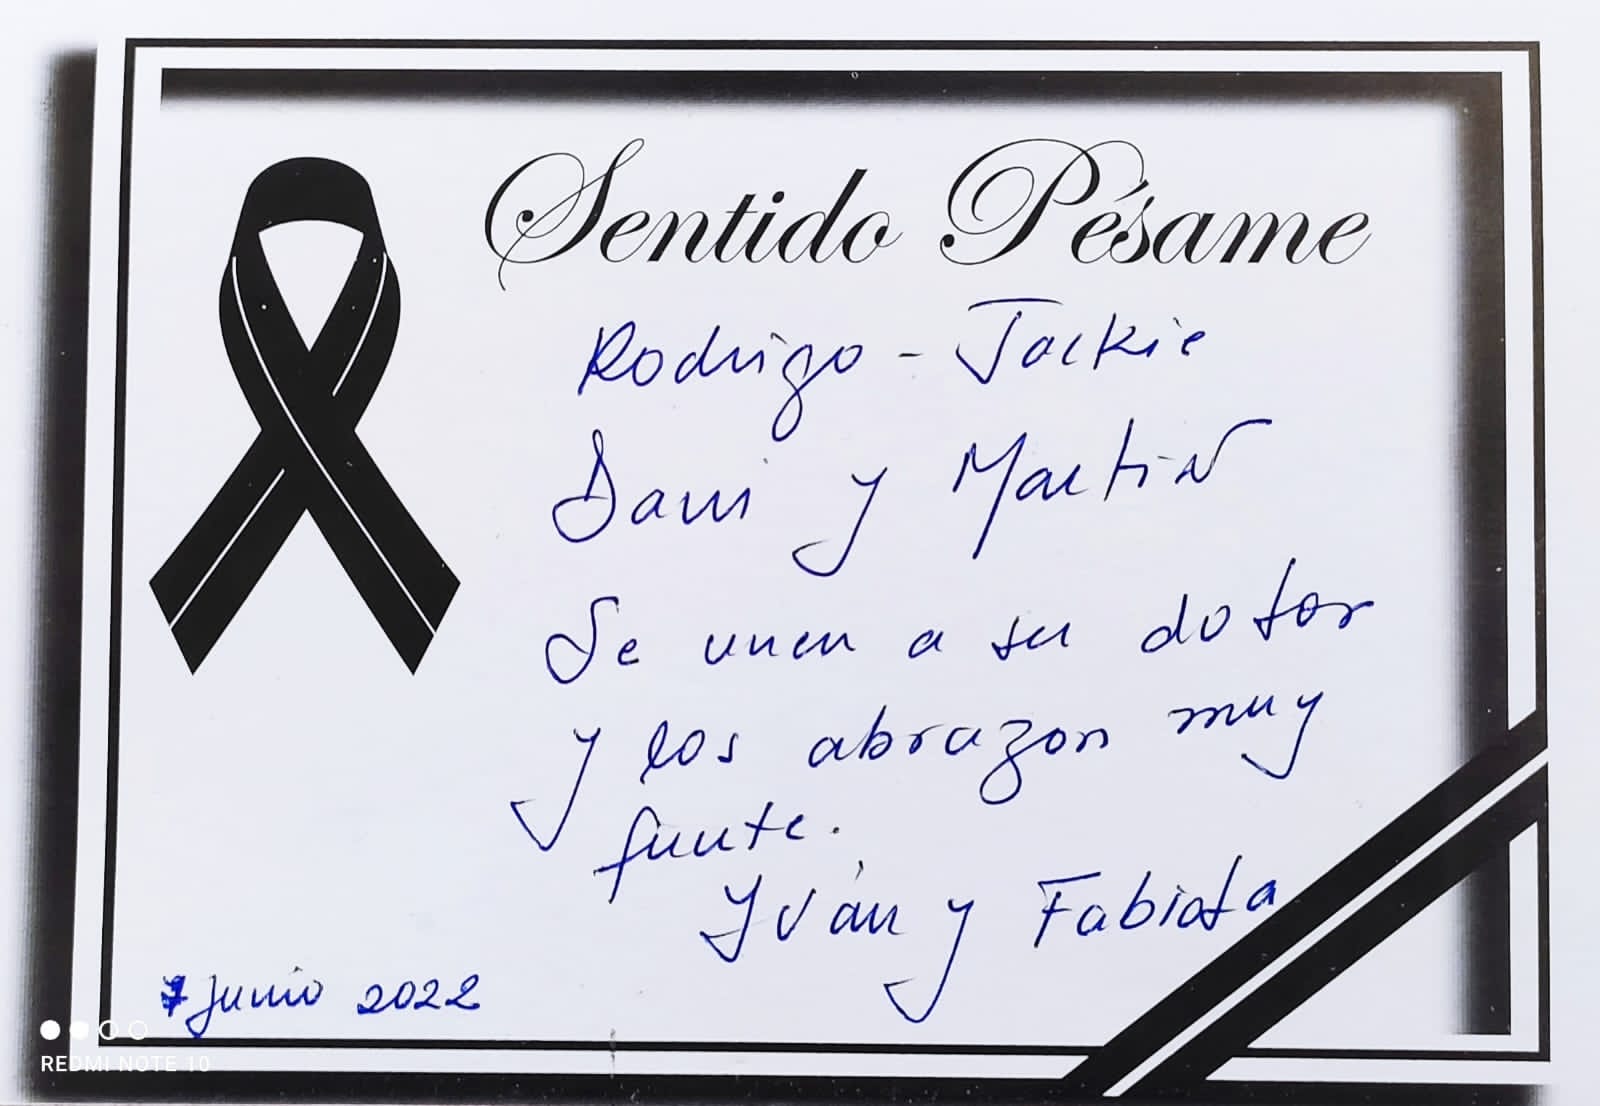 Sentido Pésame
Rodrigo - Jackie
Dani y Martin
Se unen a su dolor
y los abrazon muy
fuerte.
Iván y Fabiola
7 junio 2022
REDMI NOTE 10